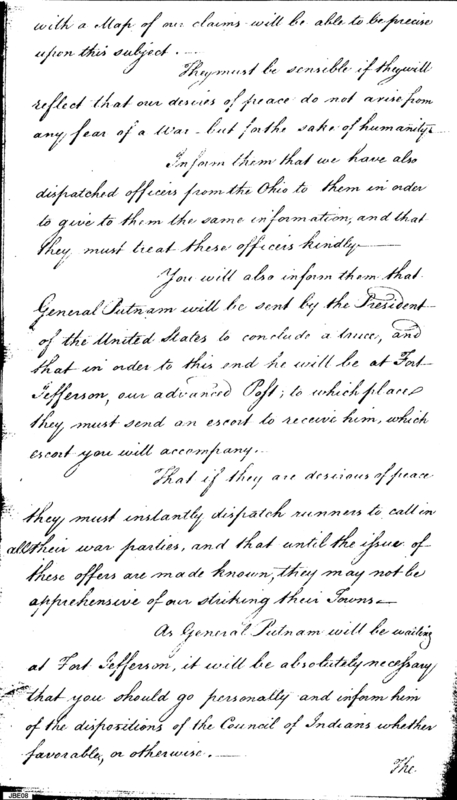 with a Map of our claims will be able to be precise
upon this subject. —
They must be sensible if they will
reflect that our desires of peace do not arise from
any fear of a War – but for the sake of humanity –
Inform them that we have also
dispatched officers from the Ohio to them in order
to give to them the same information, and that
they must treat these officers kindly —
You will also inform them that
General Putnam will be sent by the President
of the United States to conclude a truce, and
that in order to this end he will be at Fort
Jefferson, our advanced Post; to which place
they must send an escort to receive him, which
escort you will accompany. –
That if they are desirous of peace
they must instantly dispatch runners to call in
all their war parties, and that until the issue of
these offers are made known, they may not be
apprehensive of our striking their Towns –
As General Putnam will be waiting
at Fort Jefferson, it will be absolutely necessary
that you should go personally and inform him
of the dispositions of the Council of Indians whether
favorable, or otherwise. —
The
JBE08